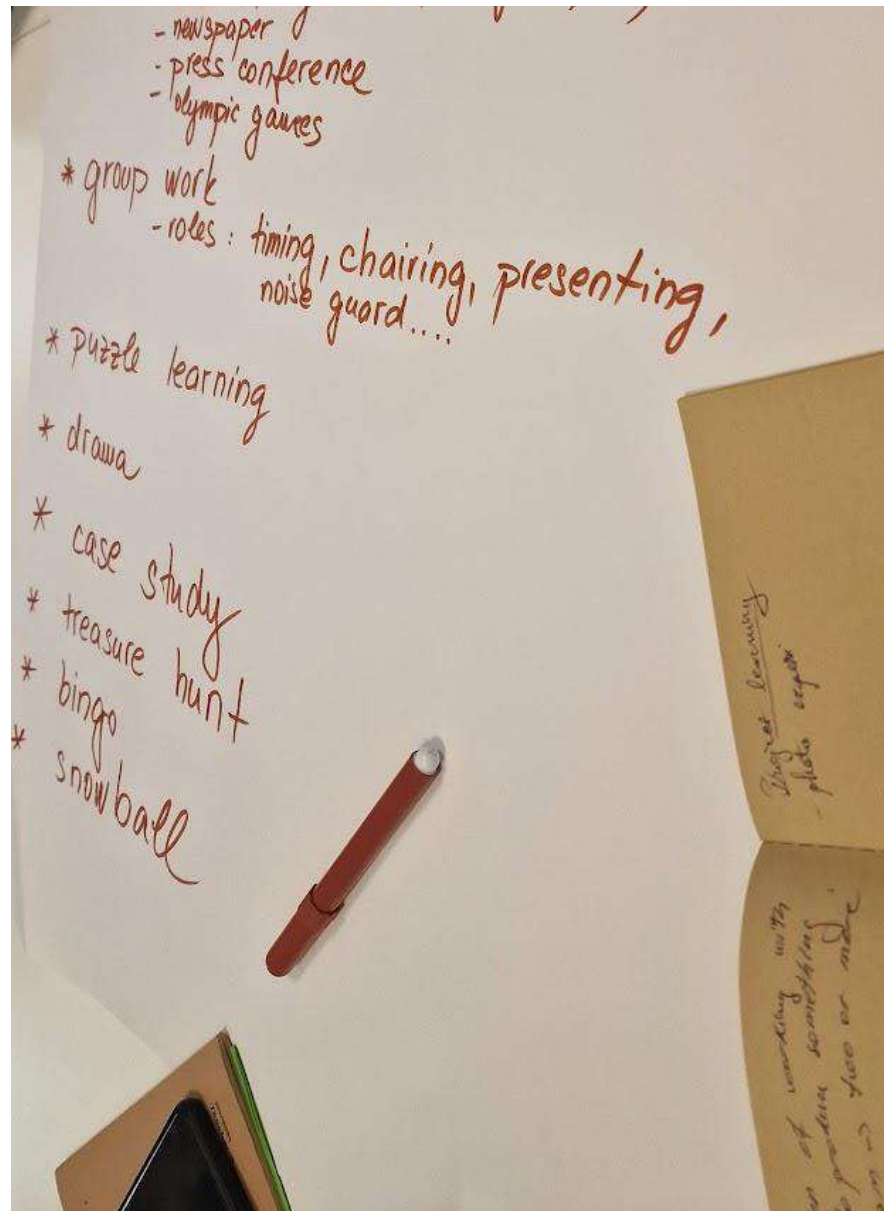 - newspaper
- press conference
- olympic games
* group work
- roles : timing, chairing, presenting,
noise guard....
* puzzle learning
* drama
* case study
* treasure hunt
* bingo
* snowball
learning
- photo
of working with
produce something
two or more